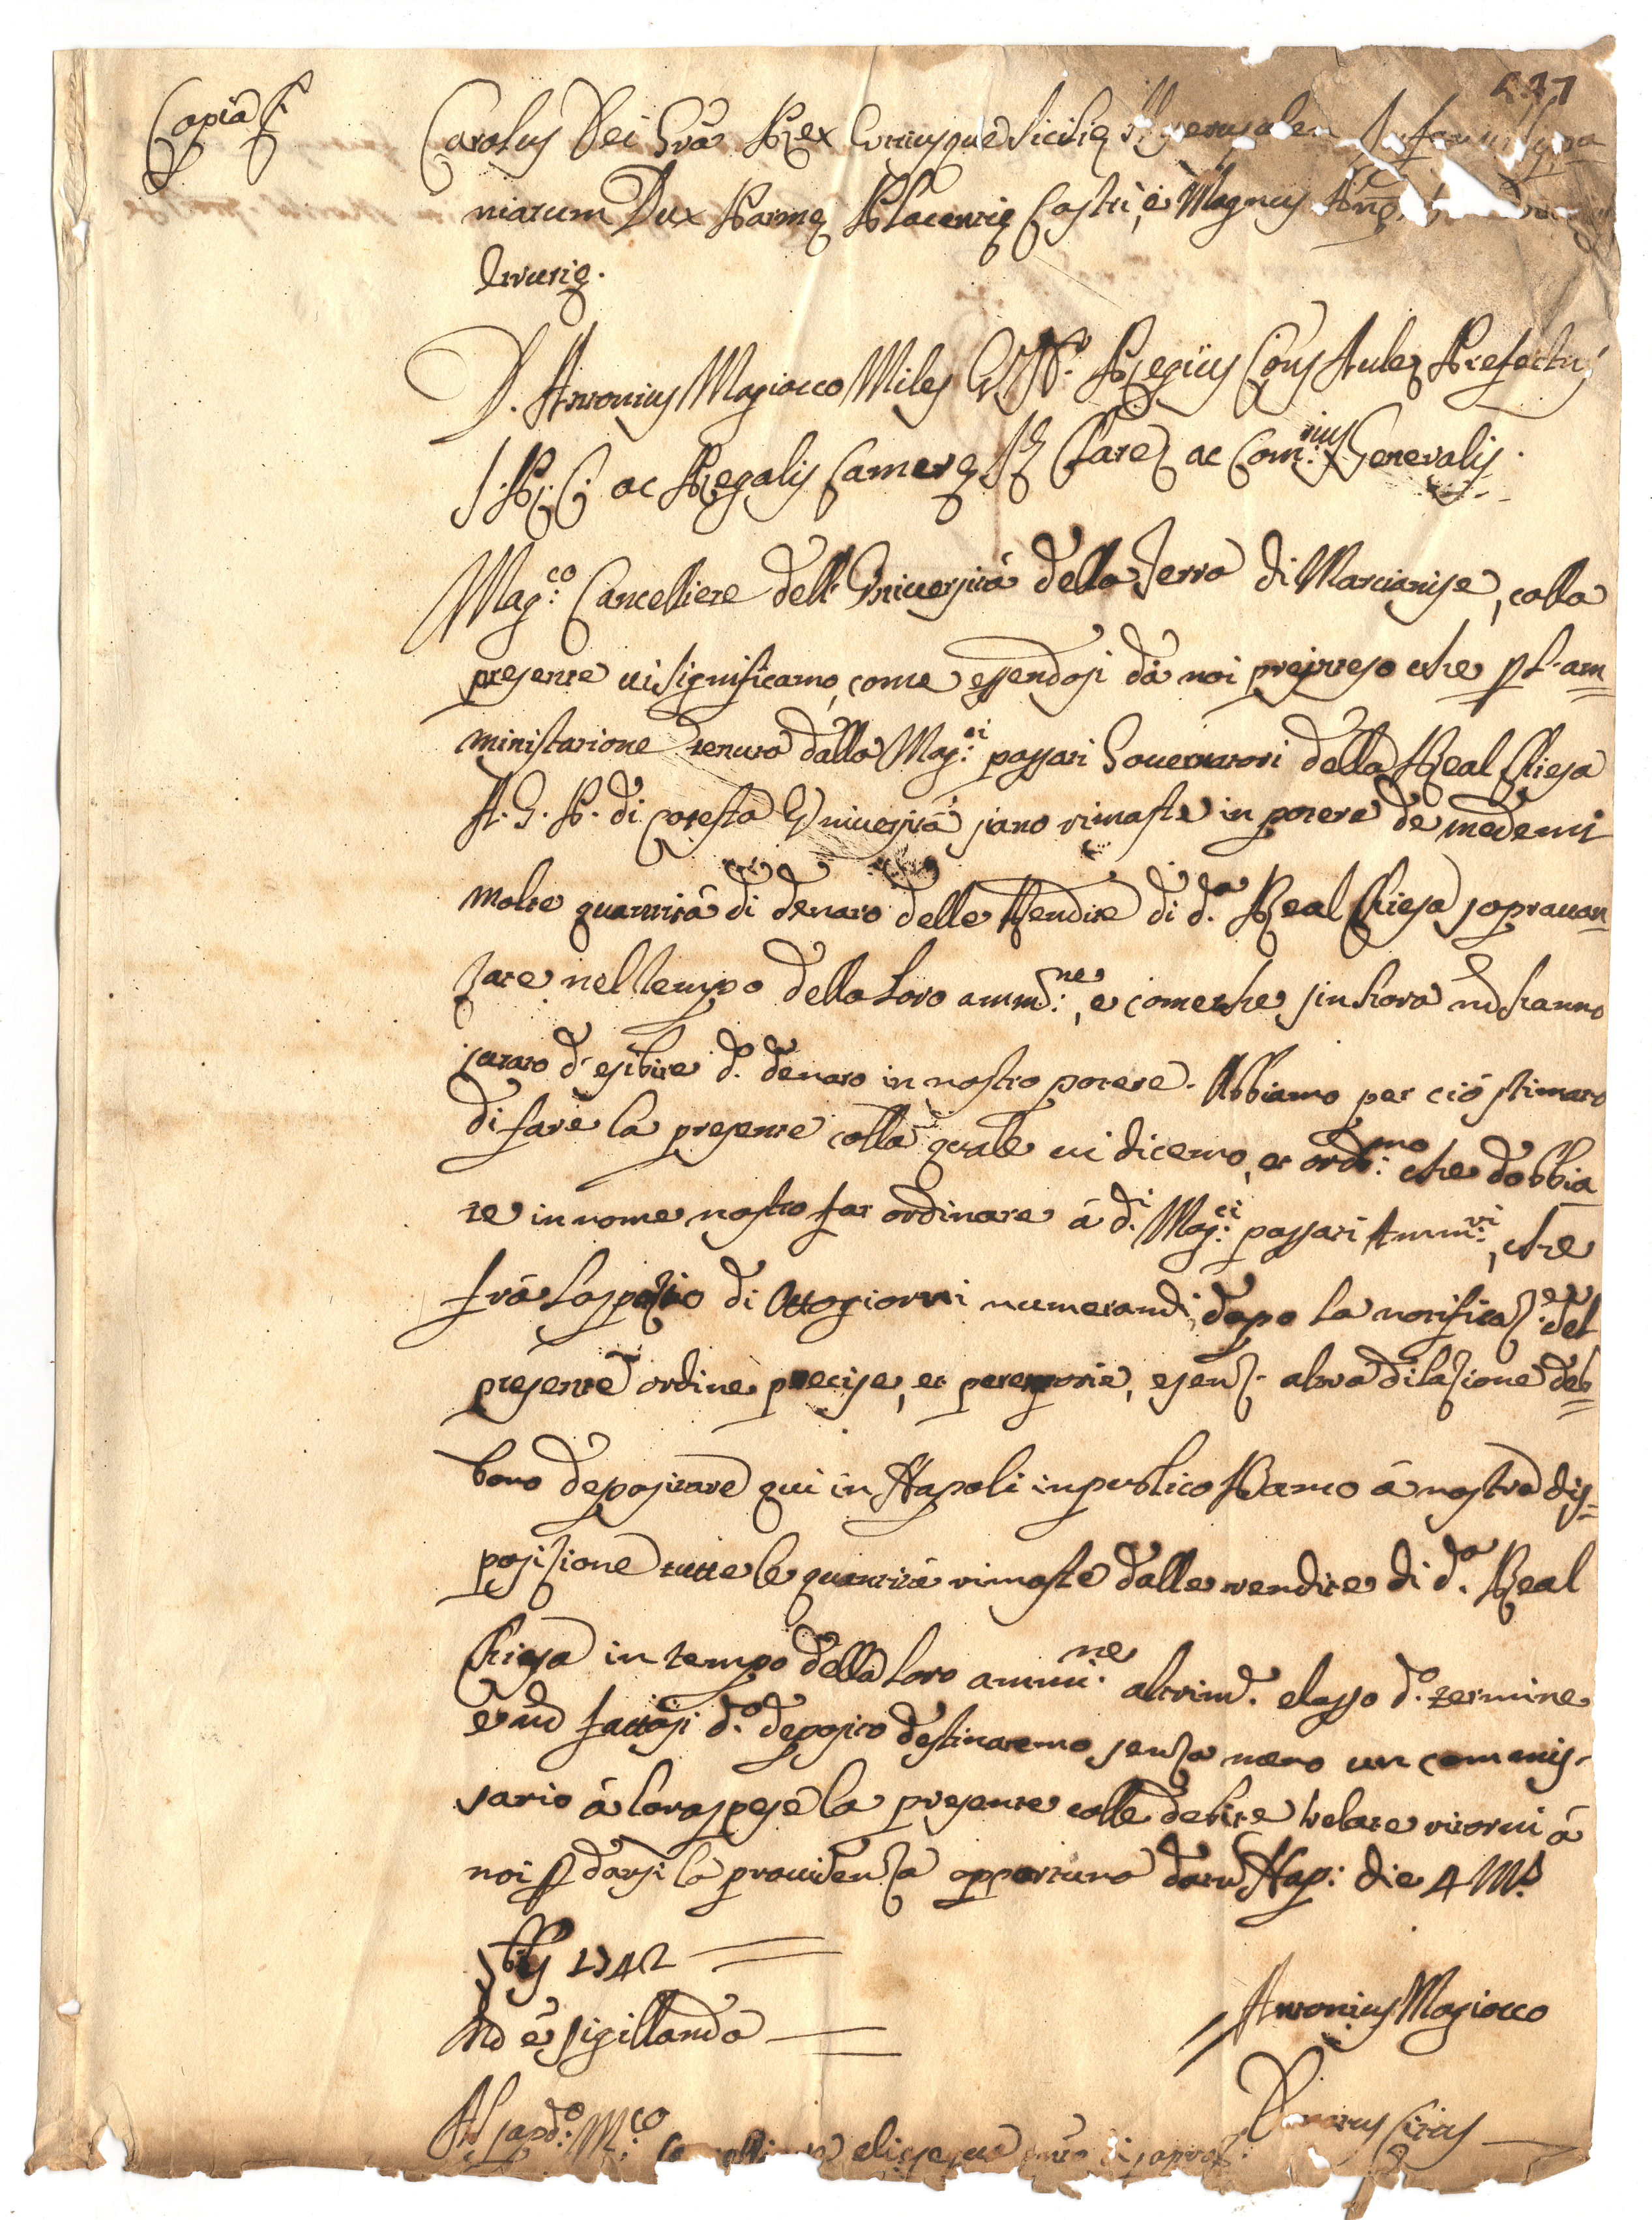 237
Copia
Carolus Dei Grã Rex Utriusque Sicilię Hyerusalem Infans Hyspa
niarum Dux Parmę Placentię Castri, e Magnus
Etrurię.
D. Antonius Magiocco Miles U.J.D. Regius Cons Aulę Prefectus
S. R. C. ac Regalis Camerę Sę Clarę ac Com:rius Generalis.
Mag:co Cancelliere dell'Università della Terra di Marcianise, colla
presente vi significamo, come essendosi dà noi preinteso che p l'am=
ministrazione tenuta dalli Mag:ci passati Governatori della Real Chiesa
A. G. P. di cotesta Università siano rimaste in potere de medemi
molte quantità di denaro delle Rendite di d:a Real Chiesa sopravan=
zate nel tempo della loro amm:ne, e come che sin hora nõ hanno
curato d'esibire d:o denaro in nostro potere. Abbiamo per ciò stimato
di fare la presente colla quale vi dicemo, et ord:mo che dobbia
te in nome nostro far ordinare à d:i Mag:ci passati Amm:ri, che
frà lo spatio di Otto giorni numerandi dopo la notificaz:e del
presente ordine precise, et peremptorie, e senz altra dilazione deb=
bano depositare qui in Napoli in publico Banco à nostra dis=
posizione tutte le quantità rimaste dalle rendite di d:a Real
Chiesa in tempo della loro ammi:ne altrim:e elasso d:o termine
e nõ fattosi d:o deposito destinaremo senza meno un commis-
sario à loro spese la presente colle debite relate ritorni à
noi p darsi la providenza opportuna datũ Nap: die 4 M:s
1742
Nõ è sigillanda
Antonius Magiocco
Al sapd:o M:co